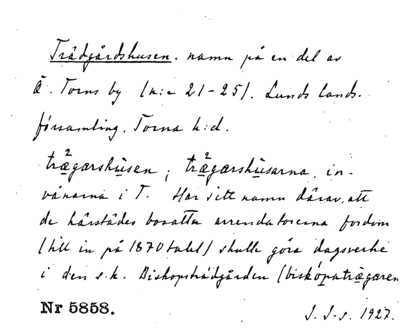 Trädgårdshusen. namn på en del av
Ö. Torns by (n:r 21-25). Lunds lands-
församling. Torna h:d.
trägarshusen; trägarshusarna, in-
vånarna i T. Har sitt namn därav, att
de härstädes bosatta arrendatorerna fordom
(till in på 1870 talet) skulle göra dagsverke
i den s.k. Biskopsträdgården (biskopsträgaren
Nr 5858.
J. I-s. 1927.